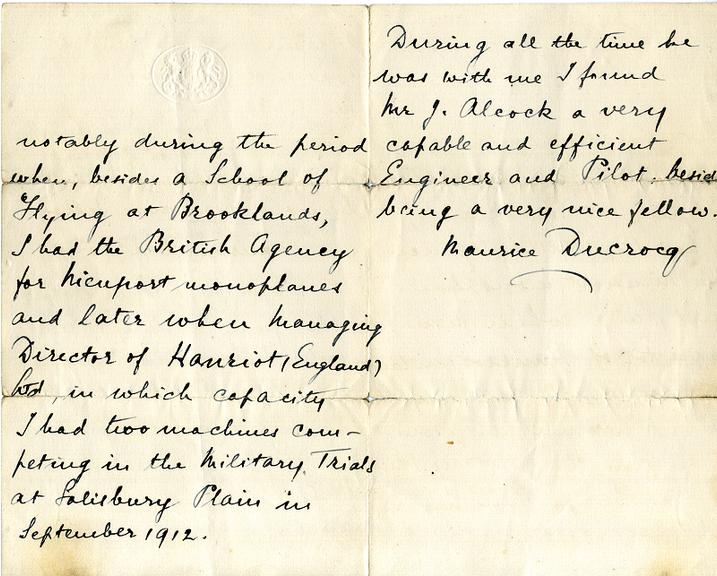 notably during the period
when, besides a School of
Flying at Brooklands,
I had the British Agency
for Nieuport monoplanes
and later when Managing
Director of Hanriot (England)
Ltd, in which capacity
I had two machines com-
peting in the Military Trials
at Salisbury Plain in
September 1912.
During all the time he
was with me I found
Mr J. Alcock a very
capable and efficient
Engineer and Pilot, besid
being a very nice fellow.
Maurice Ducrocq